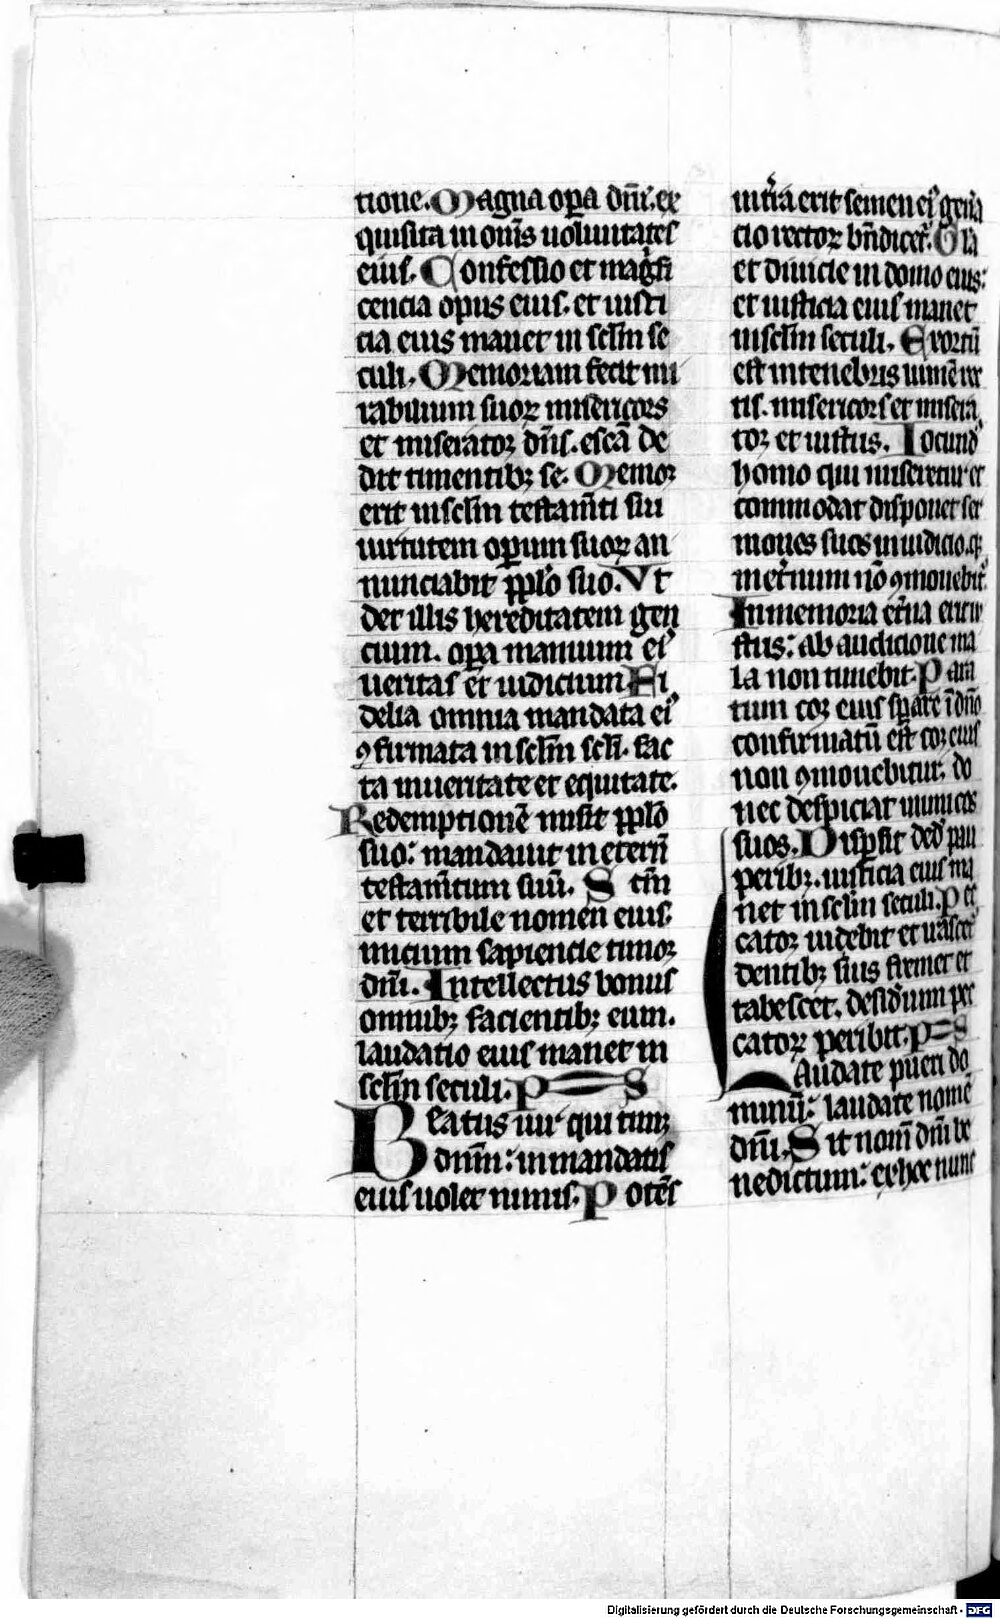 tione. Magna opa dnī. ex
quisita in omīs uoluntates
eius. Confessio et magifi
cencia opus eius. et iusti
cia eius manet in sclm se
culi. Memoriam fecit mi
rabilium suoꝝ misericors
et miserator dns. escā de
dit timentibꝫ se. Memor
erit in sclm testamti sui
uirtutem opum suoꝝ an
nunciabit pplo suo. Vt
det illis hereditatem gen
cium. opa manuum ei᷒
ueritas et iudicium. Fi
delia omnia mandata ei᷒
ꝯfirmata in sclm scli. fac
ta in ueritate et equitate.
Redemptionē misit pplo
suo: mandauit in etern̄
testamtum suū. S ctm
et terribile nomen eius.
inicium sapiencie timor
dnī. Intellectus bonus
omnibꝫ facientibꝫ eum.
laudatio eius manet in
sclm seculi. P S
Beatus uir qui tim
dnm: in mandatis
eius uolet nimis. Potēs
in trā erit semen ei᷒ gen̄a
cio rectoꝝ bndicet᷑. Glā
et diuicie in domo eius:
et iusticia eius manet
in sclm seculi. Exortū
est in tenebris lumē rec
tis. misericors et misera
tor et iustus. Iocund᷒
homo qui miseretur et
commodat disponet ser
mones suos in iudicio. qꝫ
in et̄num nō ꝯmouebit᷑.
In memoria et̄na erit iu
stus: ab audicione ma
la non timebit. Para
tum cor eius spare ī dn̄o
confirmatū est cor eius
non ꝯmouebitur. do
nec despiciat inimicos
suos. Dispsit ded᷑ pau
peribꝫ. iusticia eius ma
net in sclm seculi. Pec
cator uidebit et irascet᷑
dentibꝫ suis fremet et
tabescet. desid̄ium pec
catoꝝ peribit. P S
Laudate pueri do
minū: laudate nomē
dnī. Sit nom̄ dnī be
nedictum: ex hoc nunc
Digitalisierung gefördert durch die Deutsche Forschungsgemeinschaft - DFG